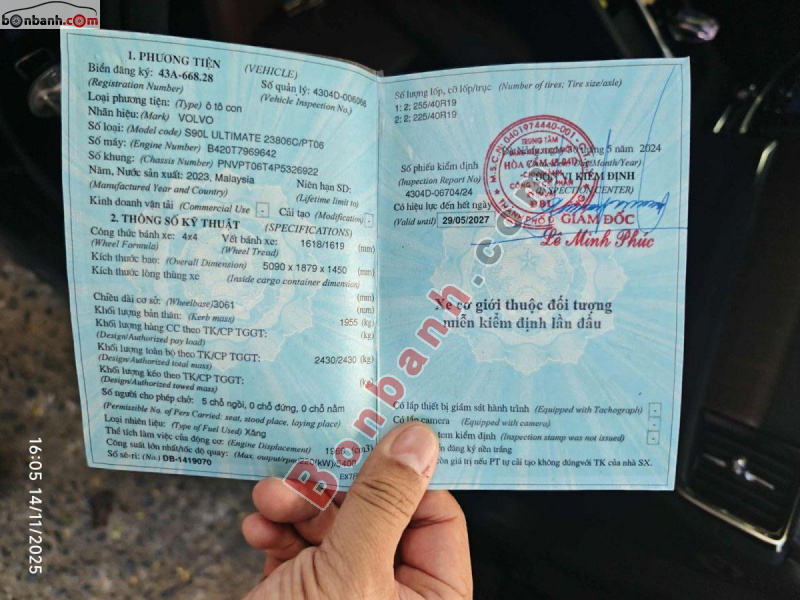 bonbanh.com
1. PHƯƠNG TIỆN (VEHICLE)
Biển đăng ký: 43A-668.28 Số quản lý: 4304D-006066
(Registration Number) (Vehicle Inspection No.)
Loại phương tiện: (Type) ô tô con
Nhãn hiệu: (Mark) VOLVO
Số loại: (Model code) S90L ULTIMATE 23806C/PT06
Số máy: (Engine Number) B420T7969642
Số khung: (Chassis Number) PNVPT06T4P5326922
Năm, Nước sản xuất: 2023, Malaysia Niên hạn SD:
(Manufactured Year and Country) (Lifetime limit to)
Kinh doanh vận tải (Commercial Use) - Cải tạo (Modification) -
2. THÔNG SỐ KỸ THUẬT (SPECIFICATIONS)
Công thức bánh xe: 4x4 Vết bánh xe: 1618/1619 (mm)
(Wheel Formula) (Wheel Tread)
Kích thước bao: (Overall Dimension) 5090 x 1879 x 1450 (mm)
Kích thước lòng thùng xe (Inside cargo container dimension)
(mm)
Chiều dài cơ sở: (Wheelbase) 3061 (mm)
Khối lượng bản thân: (Kerb mass) 1955 (kg)
Khối lượng hàng CC theo TK/CP TGGT: (kg)
(Design/Authorized pay load)
Khối lượng toàn bộ theo TK/CP TGGT: 2430/2430 (kg)
(Design/Authorized total mass)
Khối lượng kéo theo TK/CP TGGT: (kg)
(Design/Authorized towed mass)
Số người cho phép chở: 5 chỗ ngồi, 0 chỗ đứng, 0 chỗ nằm
(Permissible No. of Pers Carried: seat, stood place, laying place)
Loại nhiên liệu: (Type of Fuel Used) Xăng
Thể tích làm việc của động cơ: (Engine Displacement) (cm3)
Công suất lớn nhất/tốc độ quay: (Max. output/rpm)
Số sê-ri: (No.) DB-1419070
Số lượng lốp, cỡ lốp/trục (Number of tires; Tire size/axle)
1: 2; 255/40R19
2: 2; 225/40R19
5 năm 2024
Số phiếu kiểm định
(Inspection Report No)
4304D-06704/24
Có hiệu lực đến hết ngày
(Valid until) 29/05/2027
M.S.C.N: 0401974440-001
TRUNG TÂM
ĐƠN VỊ KIỂM ĐỊNH
GIÁM ĐỐC
Lê Minh Phúc
Xe cơ giới thuộc đối tượng
miễn kiểm định lần đầu
Có lắp thiết bị giám sát hành trình (Equipped with Tachograph) -
Có lắp camera (Equipped with camera) -
tem kiểm định (Inspection stamp was not issued) -
đăng ký nền trắng
còn giá trị nếu PT tự cải tạo không đúng với TK của nhà SX.
Bonbanh.com
16:05 14/11/2025